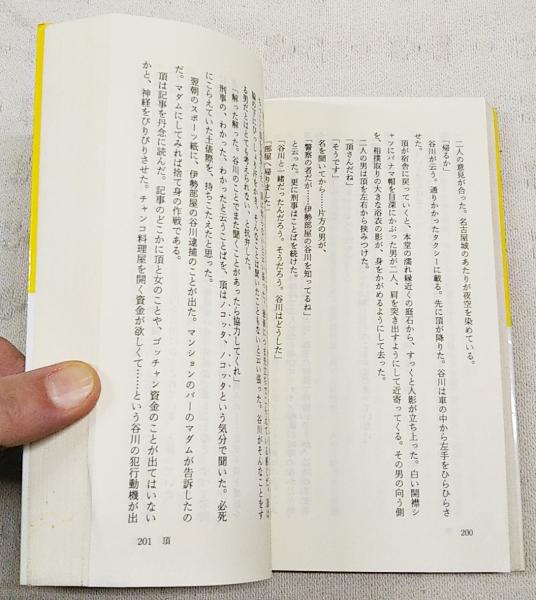 二人の意見が合った。名古屋城のあたりが夜空を染めている。
「帰るか」
谷川が云う。通りかかったタクシーに載る。先に頂が降りた。谷川は車の中から左手をひらひらさ
せた。
頂が宿舎に戻っていくと、本堂の濡れ縁近くの庭石から、すっくと人影が立ち上った。白い開襟シ
ャツにパナマ帽を目深にかぶった男が二人、肩を突き出すようにして近寄ってくる。その男の向う側
を、相撲取りの大きな浴衣の影が、身をかがめるようにして去った。
二人の男は頂を左右から挟みつけた。
「頂さんだね」
「そうです」
名を聞いたから……片方の男が、
「警察の者だが……伊勢部屋の谷川を知ってるね」
と云った。更に刑事はことばを続けた。
「谷川と一緒だったんだろう。そうだろう。谷川はどうした」
「部屋へ帰りました」
200
る男だとはとても考えられない、そう抗弁した。
「解った解った。谷川のことでまた聞くことがあったら協力してくれ」
刑事の、わかった、わかったと云うことばを、頂はノコッタ、ノコッタという気分で聞いた。必死
にこらえていた土俵際を、持ちこたえたと思った。
翌朝のスポーツ紙に、伊勢部屋の谷川逮捕のことが出た。マンションのバーのマダムが告訴したの
だ。マダムにしてみれば捨て身の作戦である。
頂は記事を丹念に読んだ。記事のどこかに頂と女のことや、ゴッチャン資金のことが出てはいない
かと、神経をぴりぴりさせた。チャンコ料理屋を開く資金が欲しくて……という谷川の犯行動機が出
201 頂